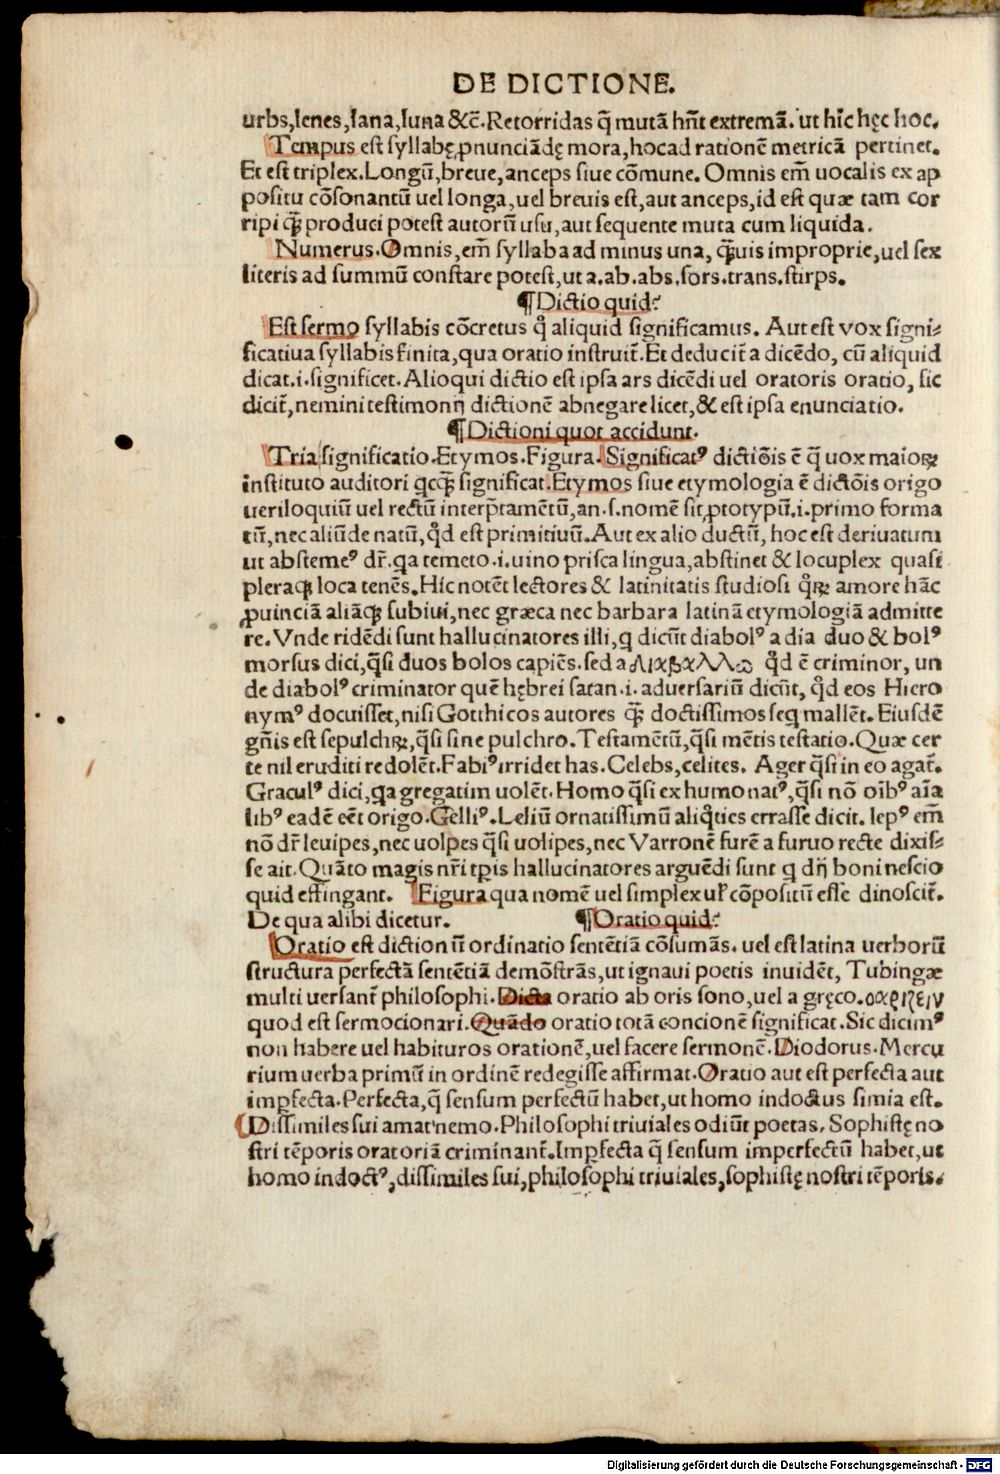 DE DICTIONE.
urbs,lenes,lana,luna &c̄.Retorridas q̃ mutã hñt extremã. ut hic̃ hęc hoc.
Tempus est syllabę ꝓnunciãdę mora,hocad rationẽ metricã pertinet.
Et est triplex.Longũ,breue,anceps siue cõmune. Omnis em̃ uocalis ex ap
positu cõsonantũ uel longa,uel breuis est,aut anceps,id est quæ tam cor
ripi ꝙ̃ produci potest autorũ usu,aut sequente muta cum liquida.
Numerus.Omnis,em̃ syllaba ad minus una, ꝙ̃uis improprie,uel sex
literis ad summũ constare potest,ut a.ab.abs.sors.trans.stirps.
¶Dictio quid?
Est sermo syllabis cõcretus q̊ aliquid significamus. Aut est vox signi⸗
ficatiua syllabis finita,qua oratio instruit̃. Et deducit̃ a dicẽdo, cũ aliquid
dicat.i.significet.Alioqui dictio est ipsa ars dicẽdi uel oratoris oratio, sic
dicit̃,nemini testimonij dictionẽ abnegare licet,& est ipsa enunciatio.
¶Dictioni quot accidunt.
Tria significatio.Etymos.Figura.Significatꝰ dictiõis ẽ q̃ uox maioꝝ
instituto auditori qcꝙ̃ significat.Etymos siue etymologia ẽ dictõis origo
ueriloquiũ uel rectũ interp̃tamẽtũ,an.s.nomẽ sit ꝓtotypũ.i.primo forma
tũ,nec aliũde natũ,q̊d est primitiuũ.Aut ex alio ductũ, hoc est deriuatum
ut abstemeꝰ dr̃.qa temeto.i.uino prisca lingua,abstinet & locuplex quasi
pleraꝙ loca tenẽs.Hic notẽt lectores & latinitatis studiosi q̊ꝝ amore hãc
ꝓuinciã aliãꝙ subiui,nec græca nec barbara latinã etymologiã admitte
re.Vnde ridẽdi sunt hallucinatores illi,q dicũt diabolꝰ a dia duo & bolꝰ
morsus dici,q̃si duos bolos capiẽs.sed a ΔιαβαλλΩ q̊d ẽ criminor, un
de diabolꝰ criminator quẽ hębrei satan.i.aduersariũ dicũt, q̊d eos Hiero
nymꝰ docuisset,nisi Gotthicos autores ꝙ̃ doctissimos seq mallẽt.Eiusdẽ
gñis est sepulchꝝ,q̃si sine pulchro.Testamẽtũ,q̃si mẽtis testatio.Quæ cer
te nil eruditi redolẽt.Fabiꝰ irridet has.Celebs,celites. Ager q̃si in eo agat̃.
Graculꝰ dici,qa gregatim uolẽt.Homo q̃si ex humo natꝰ,q̃si nõ oĩbꝰ aĩa
libꝰ eadẽ eẽt origo.Gelliꝰ.Leliũ ornatissimũ aliq̊ties errasse dicit. lepꝰ em̃
nõ dr̃ leuipes,nec uolpes q̃si uolipes,nec Varronẽ furẽ a furuo recte dixis⸗
se ait.Quãto magis nr̃i tp̃is hallucinatores arguẽdi sunt q dñ boni nescio
quid effingant. Figura qua nomẽ uel simplex ul̃ cõpositũ esse dinoscit̃.
De qua alibi dicetur. ¶Oratio quid?
Oratio est diction ũ ordinatio sentẽtiã cõsumãs. uel est latina uerborũ
structura perfectã sentẽtiã demõstrãs,ut ignaui poetis inuidẽt, Tubingæ
multi uersant̃ philosophi.Dicta oratio ab oris sono,uel a gręco.οαριζειν
quod est sermocionari.Quãdo oratio totã concionẽ significat.Sic dicimꝰ
non habere uel habituros orationẽ,uel facere sermonẽ.Diodorus.Mercu
rium uerba primũ in ordinẽ redegisse affirmat.Oratio aut est perfecta aut
imꝑfecta.Perfecta,q̃ sensum perfectũ habet,ut homo indoctus simia est.
Dissimiles sui amat nemo.Philosophi triuiales odiũt poetas. Sophistę no
stri tẽporis oratoriã criminant̃.Imꝑfecta q̃ sensum imperfectũ habet,ut
homo indoctꝰ,dissimiles sui,philosophi triuiales,sophistę nostri tẽporis.
Digitalisierung gefördert durch die Deutsche Forschungsgemeinschaft - DFG